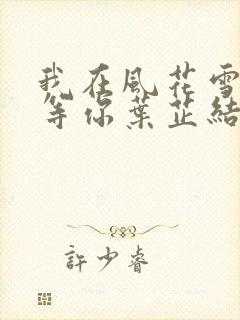 我在風花雪
等你葉芷結
許少睿